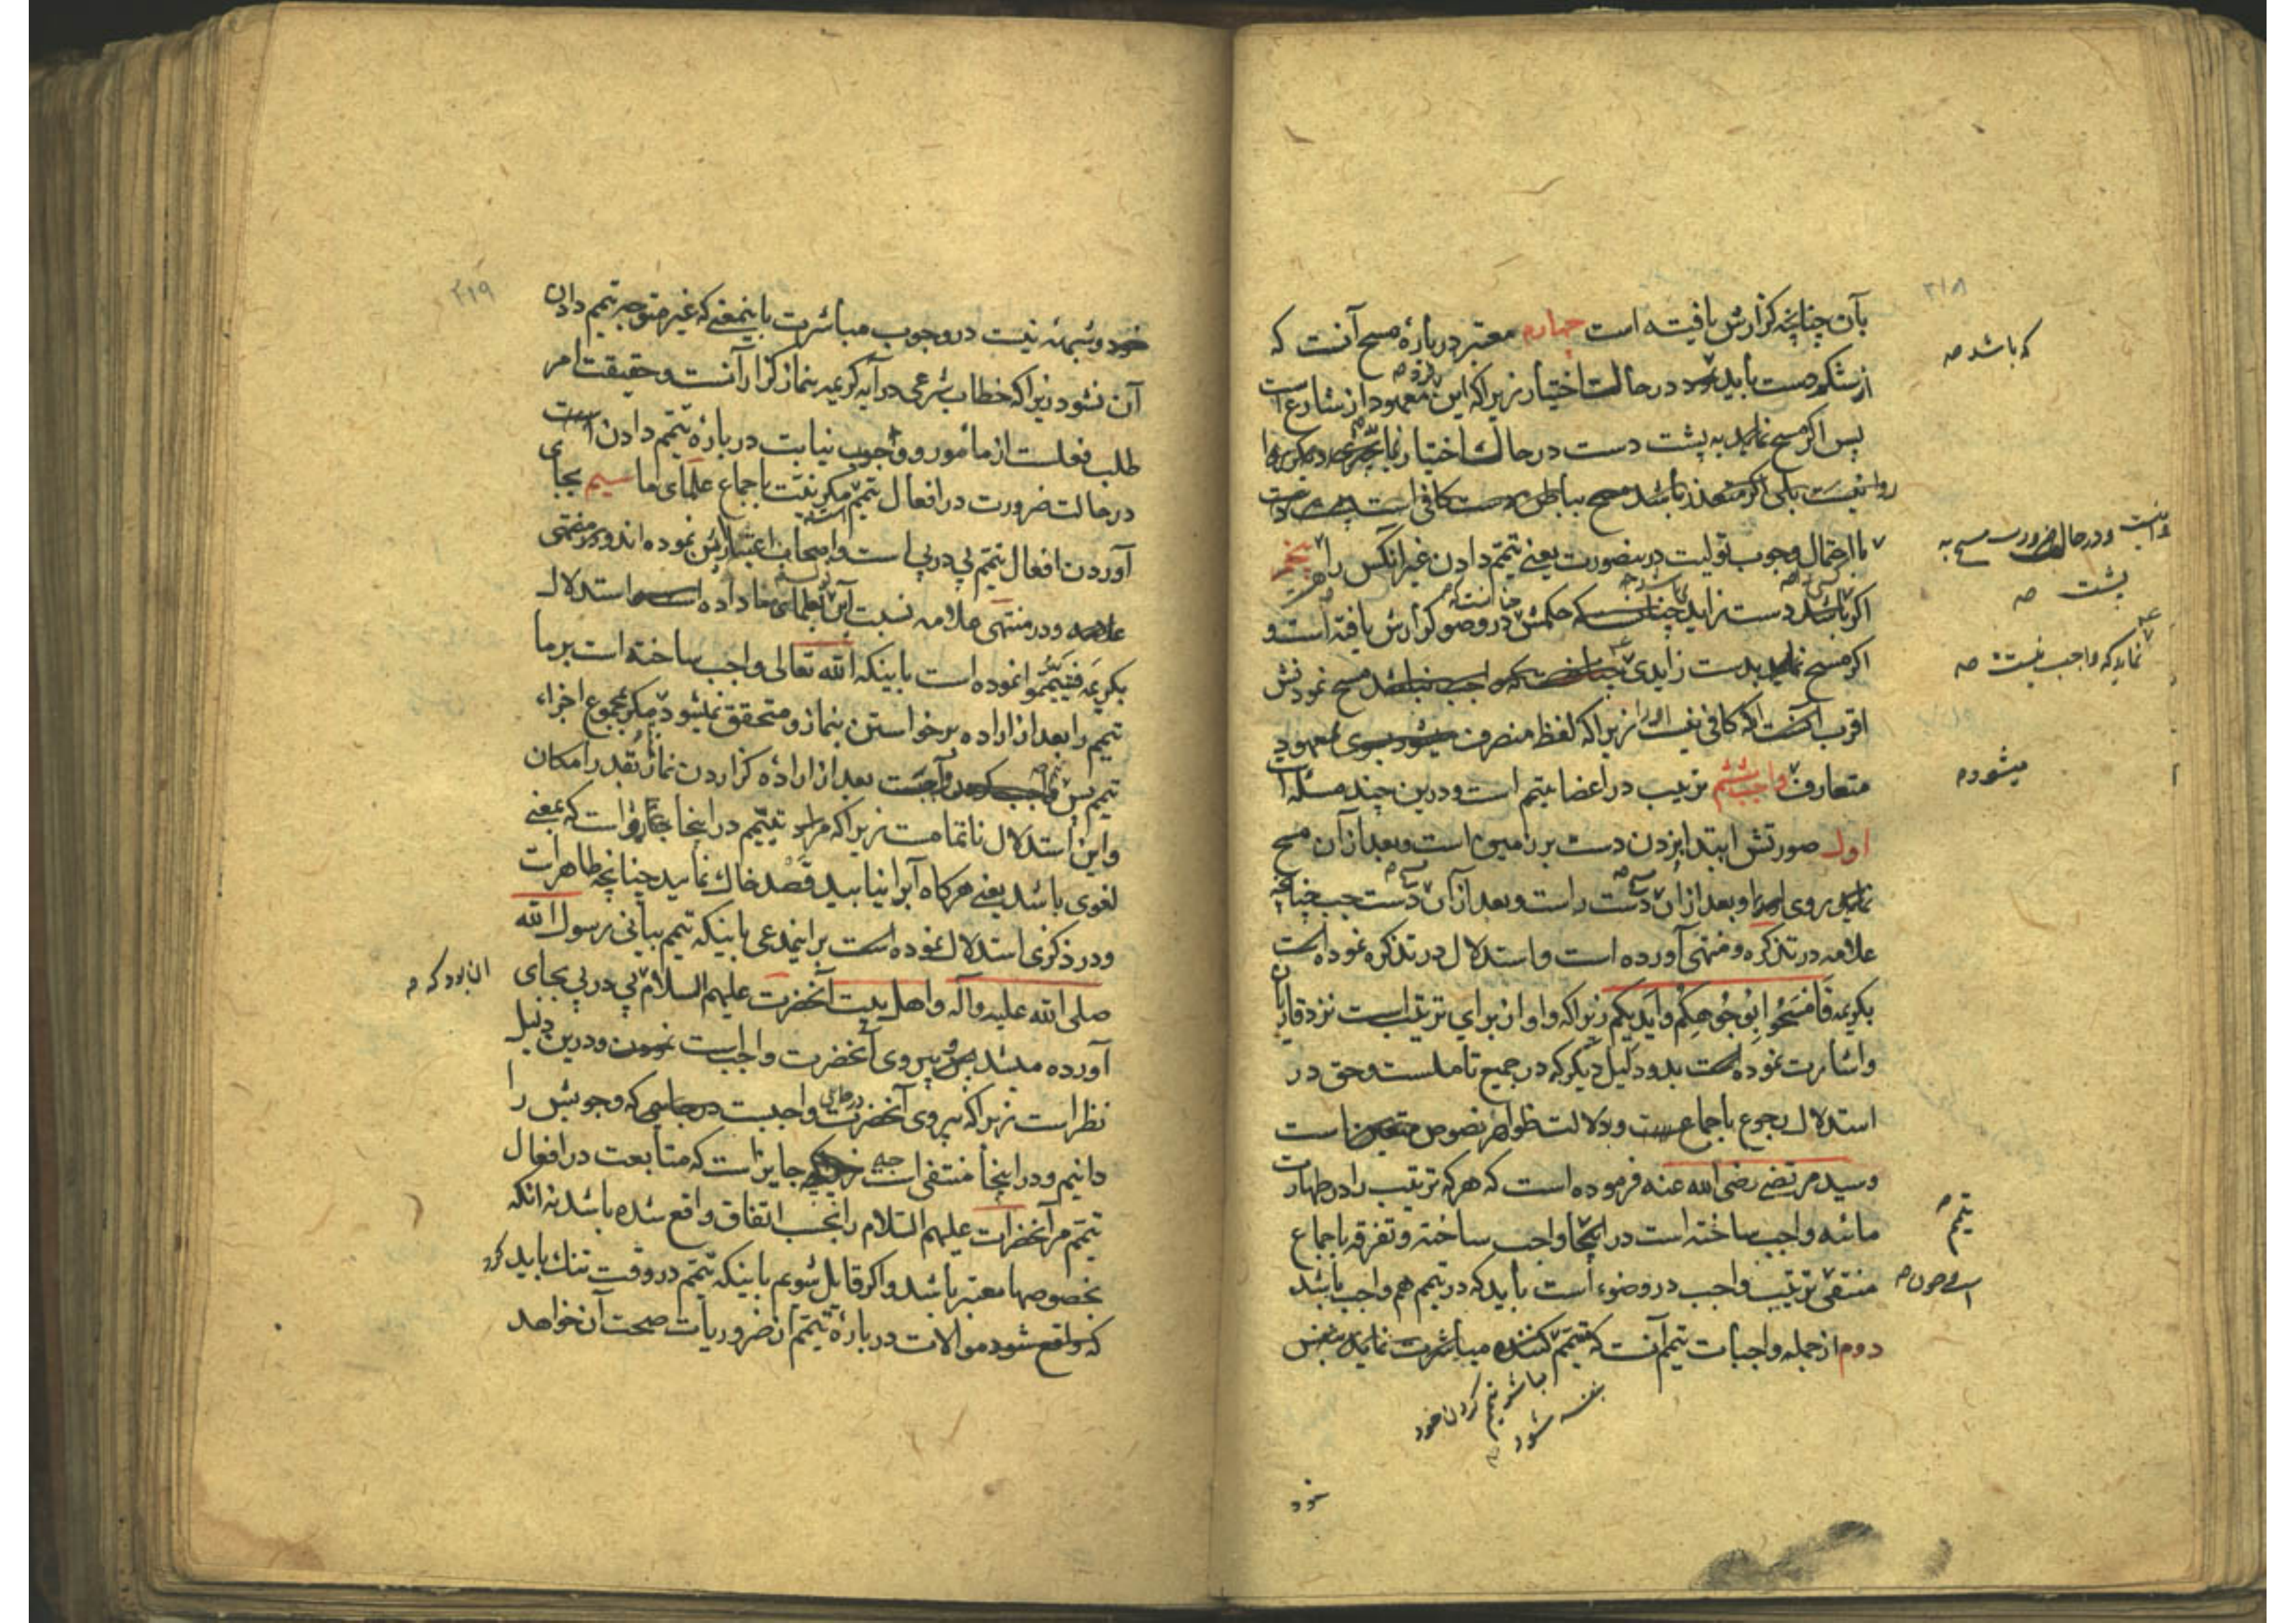 ۲۱۸
بآن چنانچه گزارش یافته است چهارم معتبر درباره مسح آنست که
که باشد صه
از شکم دست باید در حالت اختیار زیرا که این معهود از شارع است
پس اگر مسح نماید به پشت دست در حالت اختیار
روا نیست بلی اگر متعذر باشد مسح بباطن دست کافی است
ودر حال ضرورت مسح به
پشت صه
با احتمال وجوب تولیت درینصورت یعنی تیمم دادن غیر انکس را پنجم
اگر باشد دست زاید حکمش در وضو گزارش یافته است و
اگر مسح نماید بدست زایدی مسح نمودنش
نماید که واجب نیست صه
اقرب آنست که کافی نیست زیرا که لفظ منصرف میشود بسوی معهود
متعارف واجب ششم ترتیب در اعضا تیمم است و درین چند مسئله است
میشود صه
اول صورتش ابتدا بزدن دست بر زمین است و بعد از آن مسح
نماید بروی و بعد از آن دست راست و بعد از آن دست چپ چنانچه
علامه در تذکره و منتهی آورده است و استدلال در تذکره نموده است
بکریمه فامسحوا بوجوهکم وایدیکم زیرا که واو از برای ترتیب است نزد
واشارت نموده است بدو دلیل دیگر که در جمیع تاملست و حق در
استدلال رجوع باجماع است و دلالت ظواهر نصوص است
وسید مرتضی رضی الله عنه فرموده است که هر که ترتیب را در طهارت
مائیه واجب ساخته است در اینجا واجب ساخته و تفرقه باجماع
تیمم صه
منتفی ترتیب واجب در وضوء است باید که در تیمم هم واجب باشد
دوم از جمله واجبات تیمم آنست که تیمم کننده مباشرت نماید بنفس
مباشر تیمم کردن خود
بنفسه شود
خود
۲۱۹
خود و شبهه نیست در وجوب مباشرت باینمعنی که غیر متوجه تیمم دادن
آن نشود زیرا که خطاب شرعی در آیه کریمه بنماز گزارانست و حقیقت امر
طلب فعلست از مأمور و وجوب نیابت درباره تیمم دادن است
در حالت ضرورت در افعال تیمم مگر نیت باجماع علمای ما سیم بجای
آوردن افعال تیمم پی در پی است واصحاب اعتبارش نموده اند و
علامه ودر منتهی علامه نسبت این بعلمای ما داده است واستدلال
بکریمه فتیمموا نموده است باینکه الله تعالی واجب ساخته است بر ما
تیمم را بعد از اراده برخواستن بنماز و متحقق نمیشود مگر بمجموع اجزاء
تیمم پس واجبست بعد از اراده گزاردن نماز بقدر امکان
واین استدلال ناتمامست زیرا که مراد تیمم در اینجا است که بمعنی
لغوی باشد یعنی هرگاه آبرا نیابید قصد خاک نمایید چنانچه ظاهر است
ودر ذکری استدلال نموده است بر اینمدعی باینکه تیمم بیانی رسول الله
صلی الله علیه وآله واهل بیت آنحضرت علیهم السلام پی در پی بجای
ان بود که صه
آورده میشد پس پیروی آنحضرت واجب است ودرین دلیل
نظر است زیرا که پیروی آنحضرت واجبست که وجوبش را
دانیم و در اینجا منتفی است چه جایز است که متابعت در افعال
تیمم مر آنحضرات علیهم السلام را بحسب اتفاق واقع شده باشد نه انکه
بخصوصها معتبر باشد واگر قایل شویم باینکه تیمم در وقت تنگ باید کرد
که واقع شود موالات درباره تیمم از ضروریات صحت آن خواهد